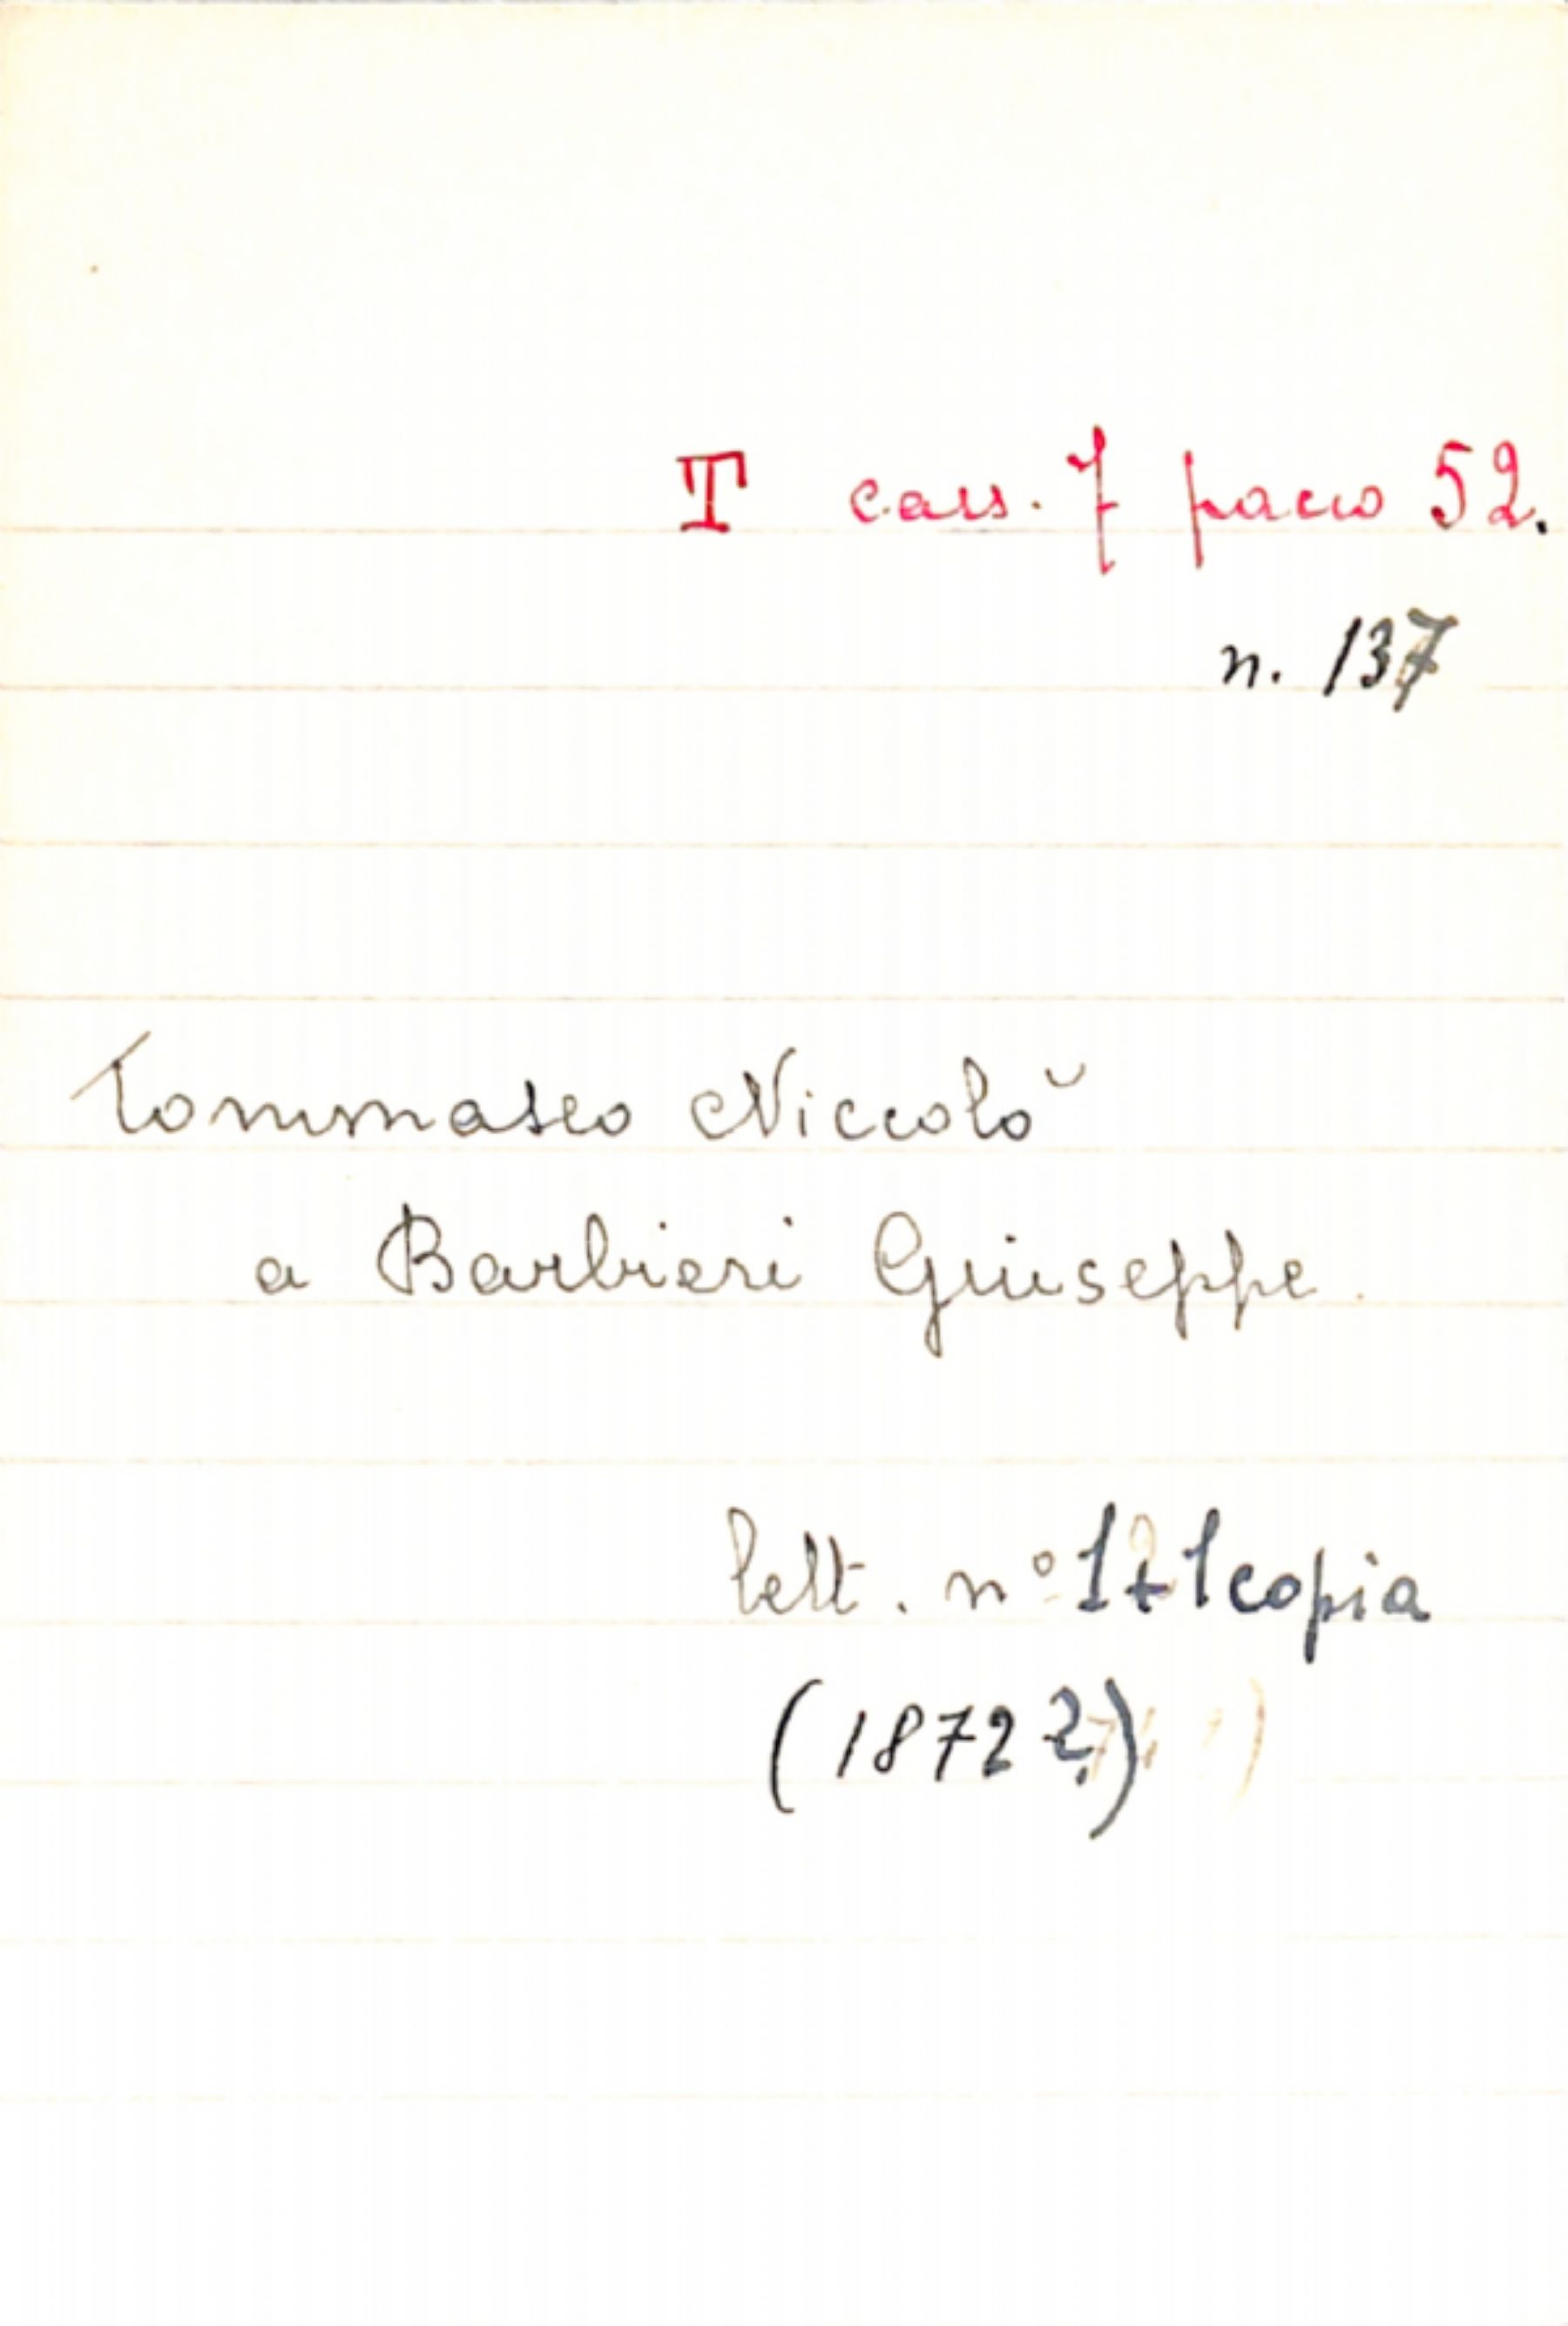 T cass. 7 pacco 52.
n. 137
Tommaseo Niccolò
a Barbieri Giuseppe.
lett. n° 1 + 1 copia
(1872 ?)